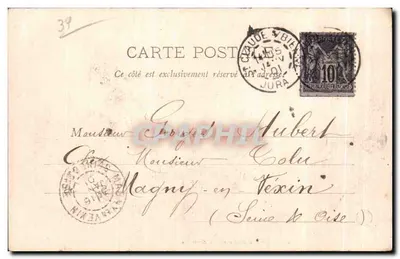 39
CARTE POSTALE
Ce côté est exclusivement réservé à l'adresse
ST CLAUDE
JURA
10
Monsieur Hubert
Monsieur Tolu
Magny-en-Vexin
(Seine & Oise)
MAGNY-EN-VEXIN